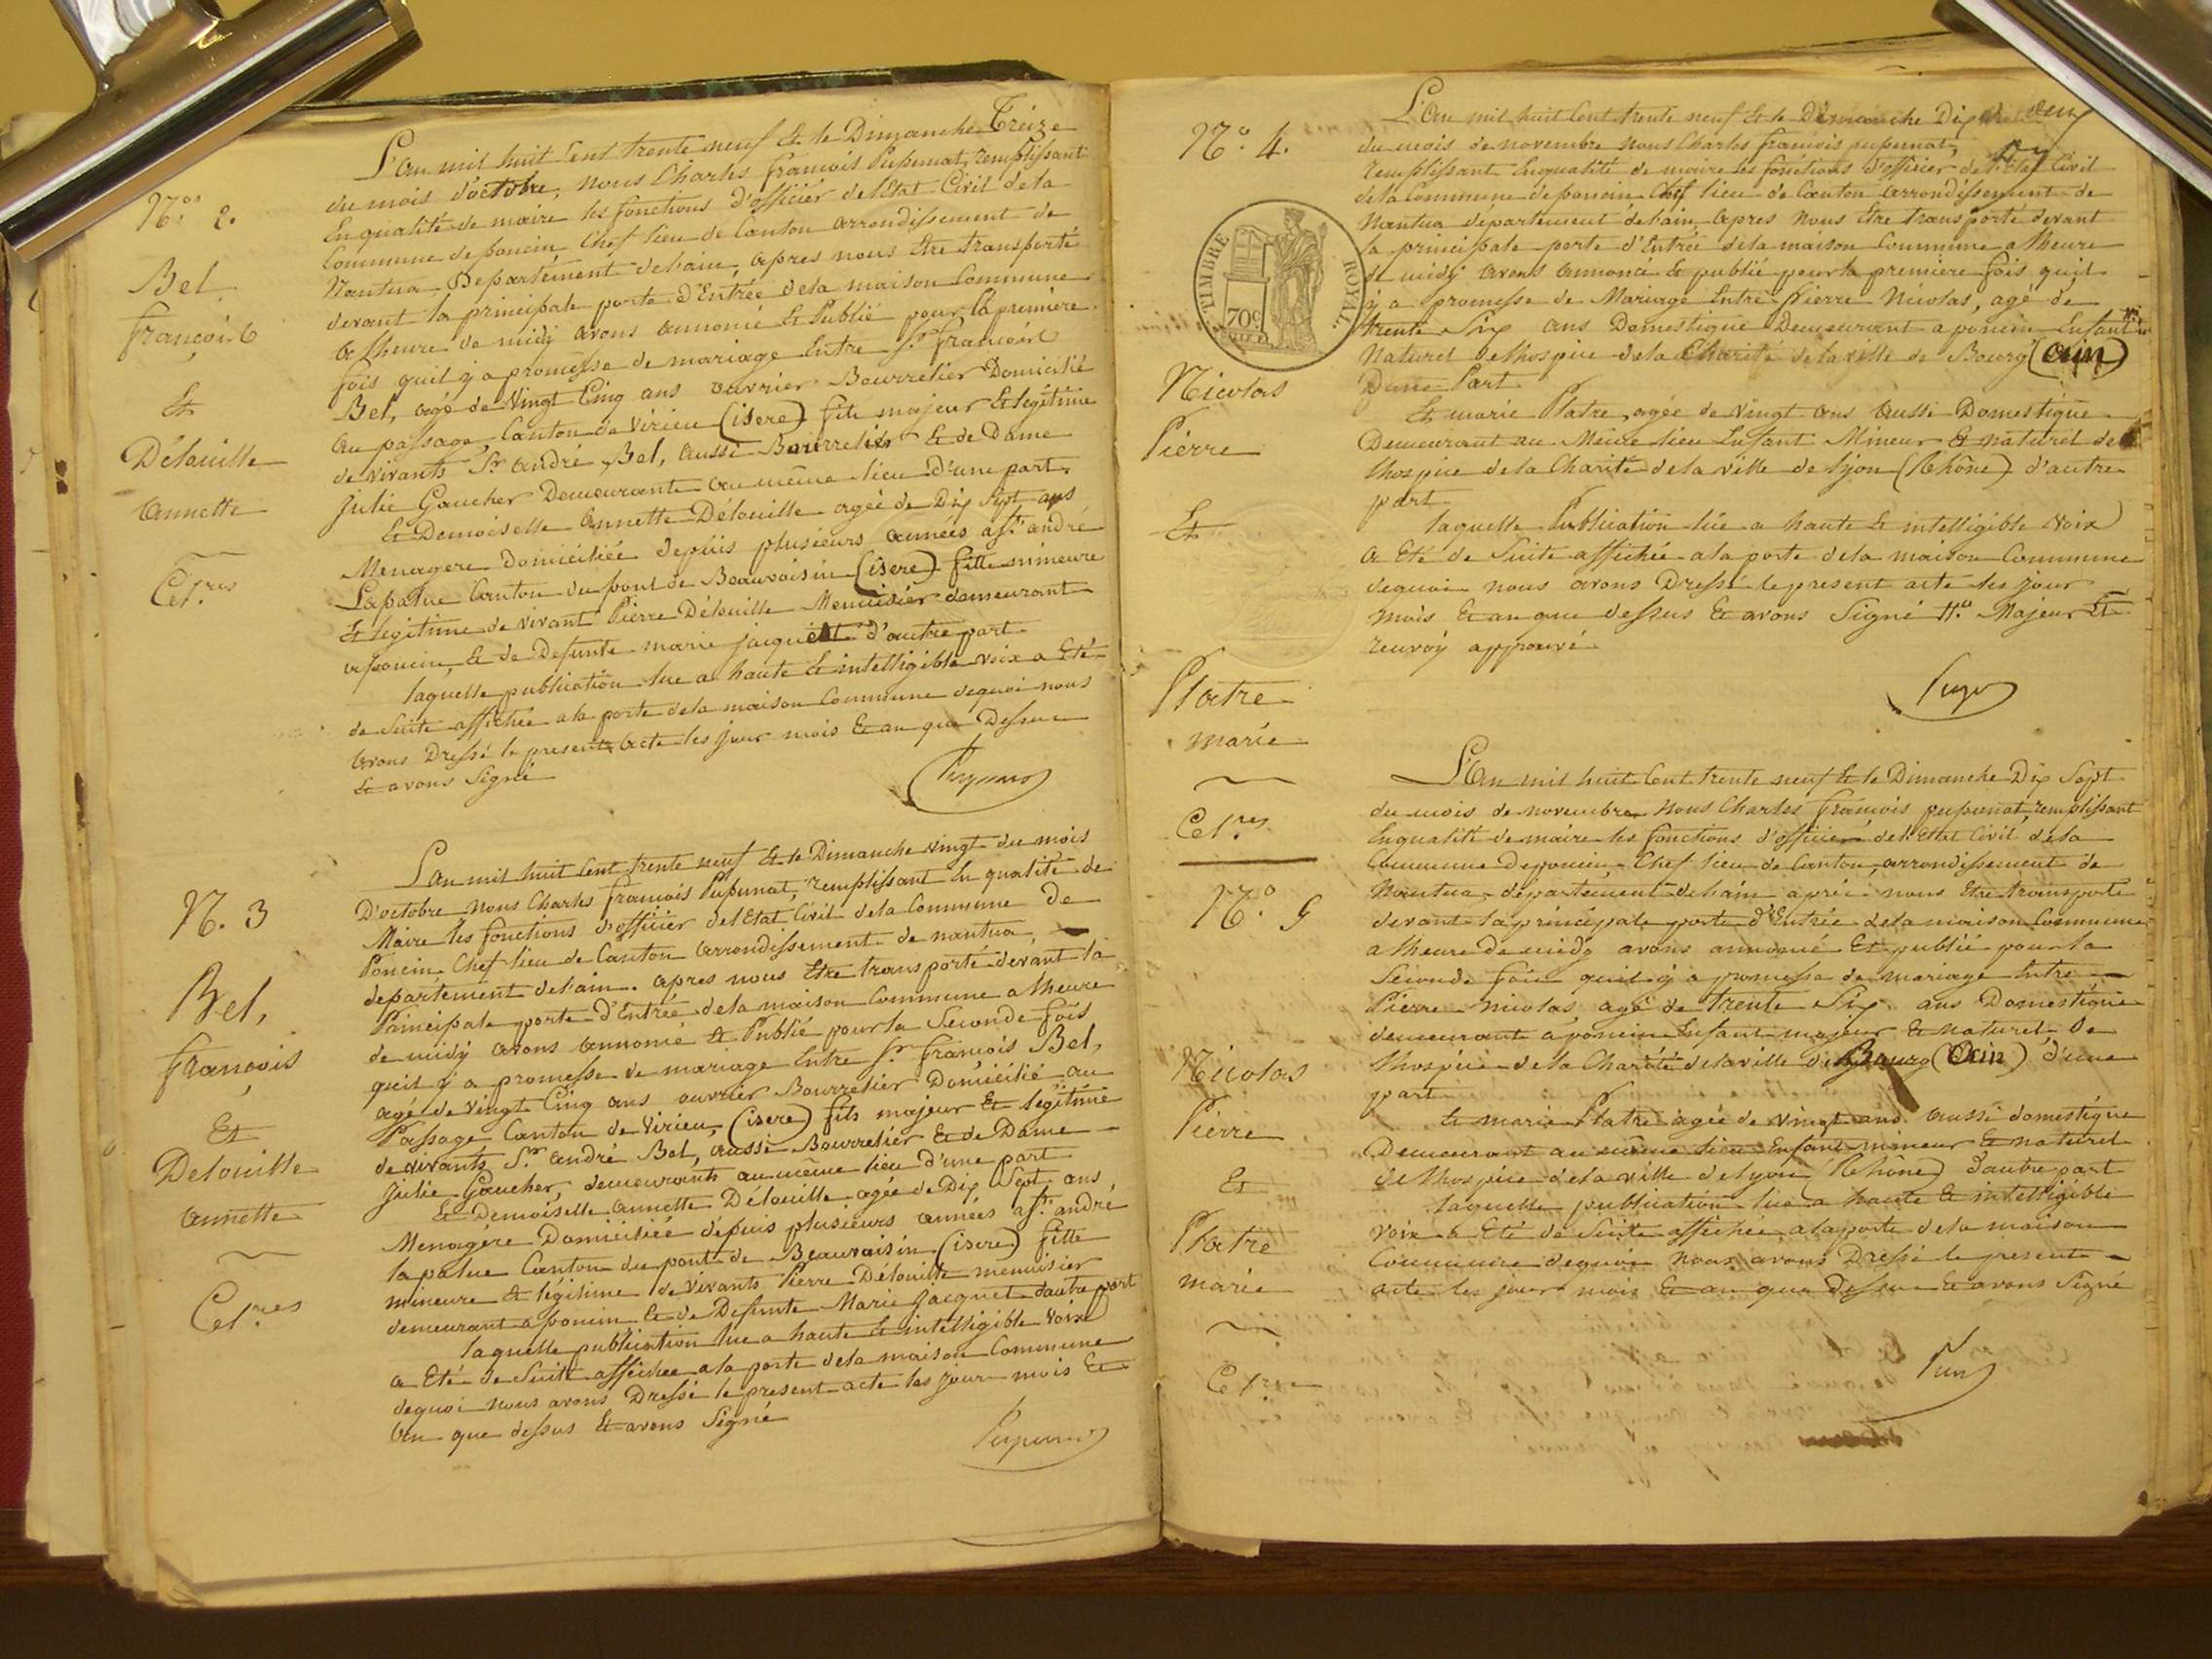 N.os 2.
Bel
françois
Et
Délouille
annette
Cel.res
L'an mil huit Cent trente neuf Et le Dimanche Treize
du mois d'octobre, nous Charles françois Pupunat, remplissant
En qualité de maire les fonctions d'officier de l'Etat Civil de la
Commune de poncin Chef lieu de Canton arrondissement de
Nantua Departement de l'ain, apres nous Etre transporté
devant la principale porte d'Entrée de la maison Commune
a l'heure de midy avons annoncé Et Publié pour la premiere
fois qu'il y a promesse de mariage Entre S.r françois
Bel, agé de Vingt Cinq ans ouvrier Bourrelier Domicilié
au passage, Canton de Virieu (isere) fils majeur Et légitime
de vivants S.r andré Bel, aussi Bourrelier Et de Dame
Julie Gaucher Demeurants au même lieu d'une part,
Et Demoiselle annette Délouille agée de Dix Sept ans
Menagere Domiciliée depuis plusieurs années a S.t andré
Lapalue Canton du pont de Beauvoisin (isere) fille mineure
Et legitime de vivant Pierre Délouille Menuisier demeurant
a poncin, Et de Defunte marie jacquet d'autre part
laquelle publication lue a haute Et intelligible voix a Eté
de Suite affichée a la porte de la maison Commune dequoi nous
avons Dressé le present acte les jour mois Et an que Dessus
Et avons Signé
Pupunat
N. 3
Bel,
françois
Et
Delouille
annette
Cel.res
L'an mil huit Cent trente neuf Et le Dimanche vingt du mois
D'octobre nous Charles françois Pupunat, remplissant En qualité de
Maire les fonctions d'officier de l'Etat Civil de la Commune de
Poncin Chef lieu de Canton arrondissement de nantua,
departement de l'ain. apres nous Etre transporté devant la
Principale porte d'Entrée de la maison Commune a l'heure
de midy avons annoncé Et Publié pour la Seconde fois
qu'il y a promesse de mariage Entre S.r françois Bel,
agé de Vingt Cinq ans ouvrier Bourrelier Domicilié au
Passage Canton de Virieu, (isere) fils majeur Et légitime
de vivants S.r andré Bel, aussi Bourrelier Et de Dame
Julie Gaucher, demeurants au même lieu d'une part
Et Demoiselle annette Délouille agée de Dix Sept ans,
Menagére Domiciliée depuis plusieurs années a S.t andré
la palue Canton du pont de Beauvaisin (isere) fille
mineure Et légitime de vivants Pierre Délouille menuisier
demeurant a poncin Et de Defunte Marie Jacquet d'autre part
laquelle publication lue a haute Et intelligible Voix
a Eté de Suite affichée a la porte de la maison Commune
dequoi nous avons Dressé le present acte les jour mois Et
an que dessus Et avons Signé
Pupunat
N.o 4.
TIMBRE ROYAL.
70 c
Nicolas
Pierre
Et
Platre
marie
Cel.res
L'an mil huit Cent trente neuf Et le Dimanche Dix
du mois de novembre nous Charles françois pupunat,
remplissant En qualité de maire les fonctions d'officier de l'Etat Civil
de la Commune de poncin Chef lieu de Canton arrondissement de
Nantua departement de l'ain, apres nous Etre transporté devant
la principale porte d'Entrée de la maison Commune a l'heure
de midy avons annoncé Et publié pour la premiere fois qu'il
y a promesse de Mariage Entre Pierre Nicolas, agé de
trente Six ans Domestique Demeurant a poncin Enfant
Naturel de l'hospice de la Charité de la ville de Bourg (Ain)
D'une Part
Et marie Platre, agée de vingt ans aussi Domestique
Demeurant au Même lieu Enfant Mineur Et naturel de
l'hospice de la Charité de la ville de lyon (Rhône) d'autre
part
laquelle Publication lue a haute Et intelligible Voix
a Eté de Suite affichée a la porte de la maison Commune
dequoi nous avons Dressé le present acte les jour
mois Et an que dessus Et avons Signé Majeur Et
renvoy approuvé
N.o 5
Nicolas
Pierre
Et
Platre
marie
Cel.res
L'an mil huit Cent trente neuf Et le Dimanche Dix Sept
du mois de novembre nous Charles françois pupunat, remplissant
En qualité de maire les fonctions d'officier de l'Etat Civil de la
Commune de poncin, Chef lieu de Canton, arrondissement de
Nantua, département de l'ain aprés nous Etre transporté
devant la principale porte d'Entrée de la maison Commune
a l'heure de midy avons annoncé Et publié pour la
Seconde fois qu'il y a promesse de mariage Entre
Pierre Nicolas, agé de trente Six ans Domestique
demeurant a poncin Enfant majeur Et naturel de
l'hospice de la Charité de la ville de Bourg (Ain) d'une
part
Et marie Platre agée de vingt ans aussi domestique
Demeurant au même lieu Enfant mineur Et naturel
de l'hospice de la ville de lyon (Rhône) d'autre part
laquelle publication lue a haute Et intelligible
voix a Eté de Suite affichée a la porte de la maison
Commune dequoi nous avons Dressé le present
acte les jour mois Et an que Dessus Et avons Signé